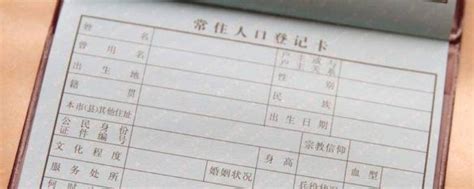 常住人口登记卡
姓名 户主或与户主关系
曾用名 性别
出生地 民族
籍贯 出生日期
本市(县)其他住址 宗教信仰
公民身份证件编号 身高 血型
文化程度 婚姻状况 兵役状况
服务处所